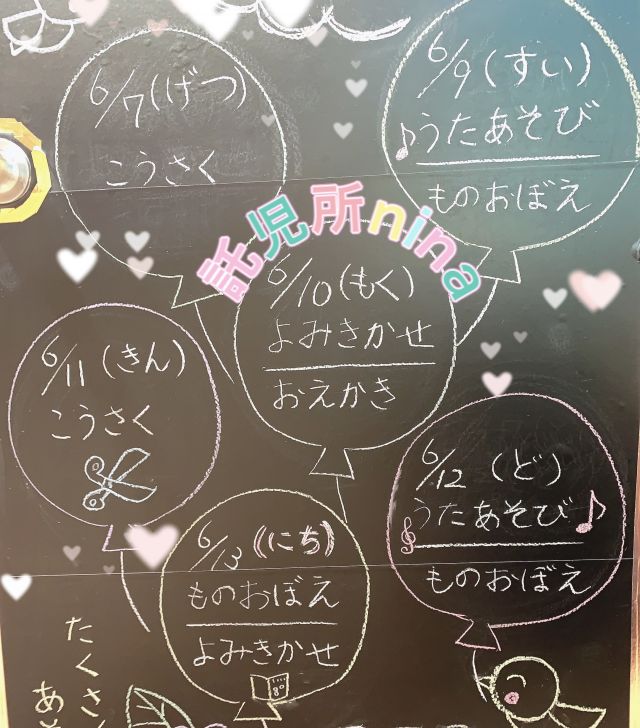 6/7(げつ)
こうさく
6/9(すい)
うたあそび
ものおぼえ
託児所nina
6/10(もく)
よみきかせ
おえかき
6/11(きん)
こうさく
6/12(ど)
うたあそび
ものおぼえ
6/13(にち)
ものおぼえ
よみきかせ
たくさ
あそ